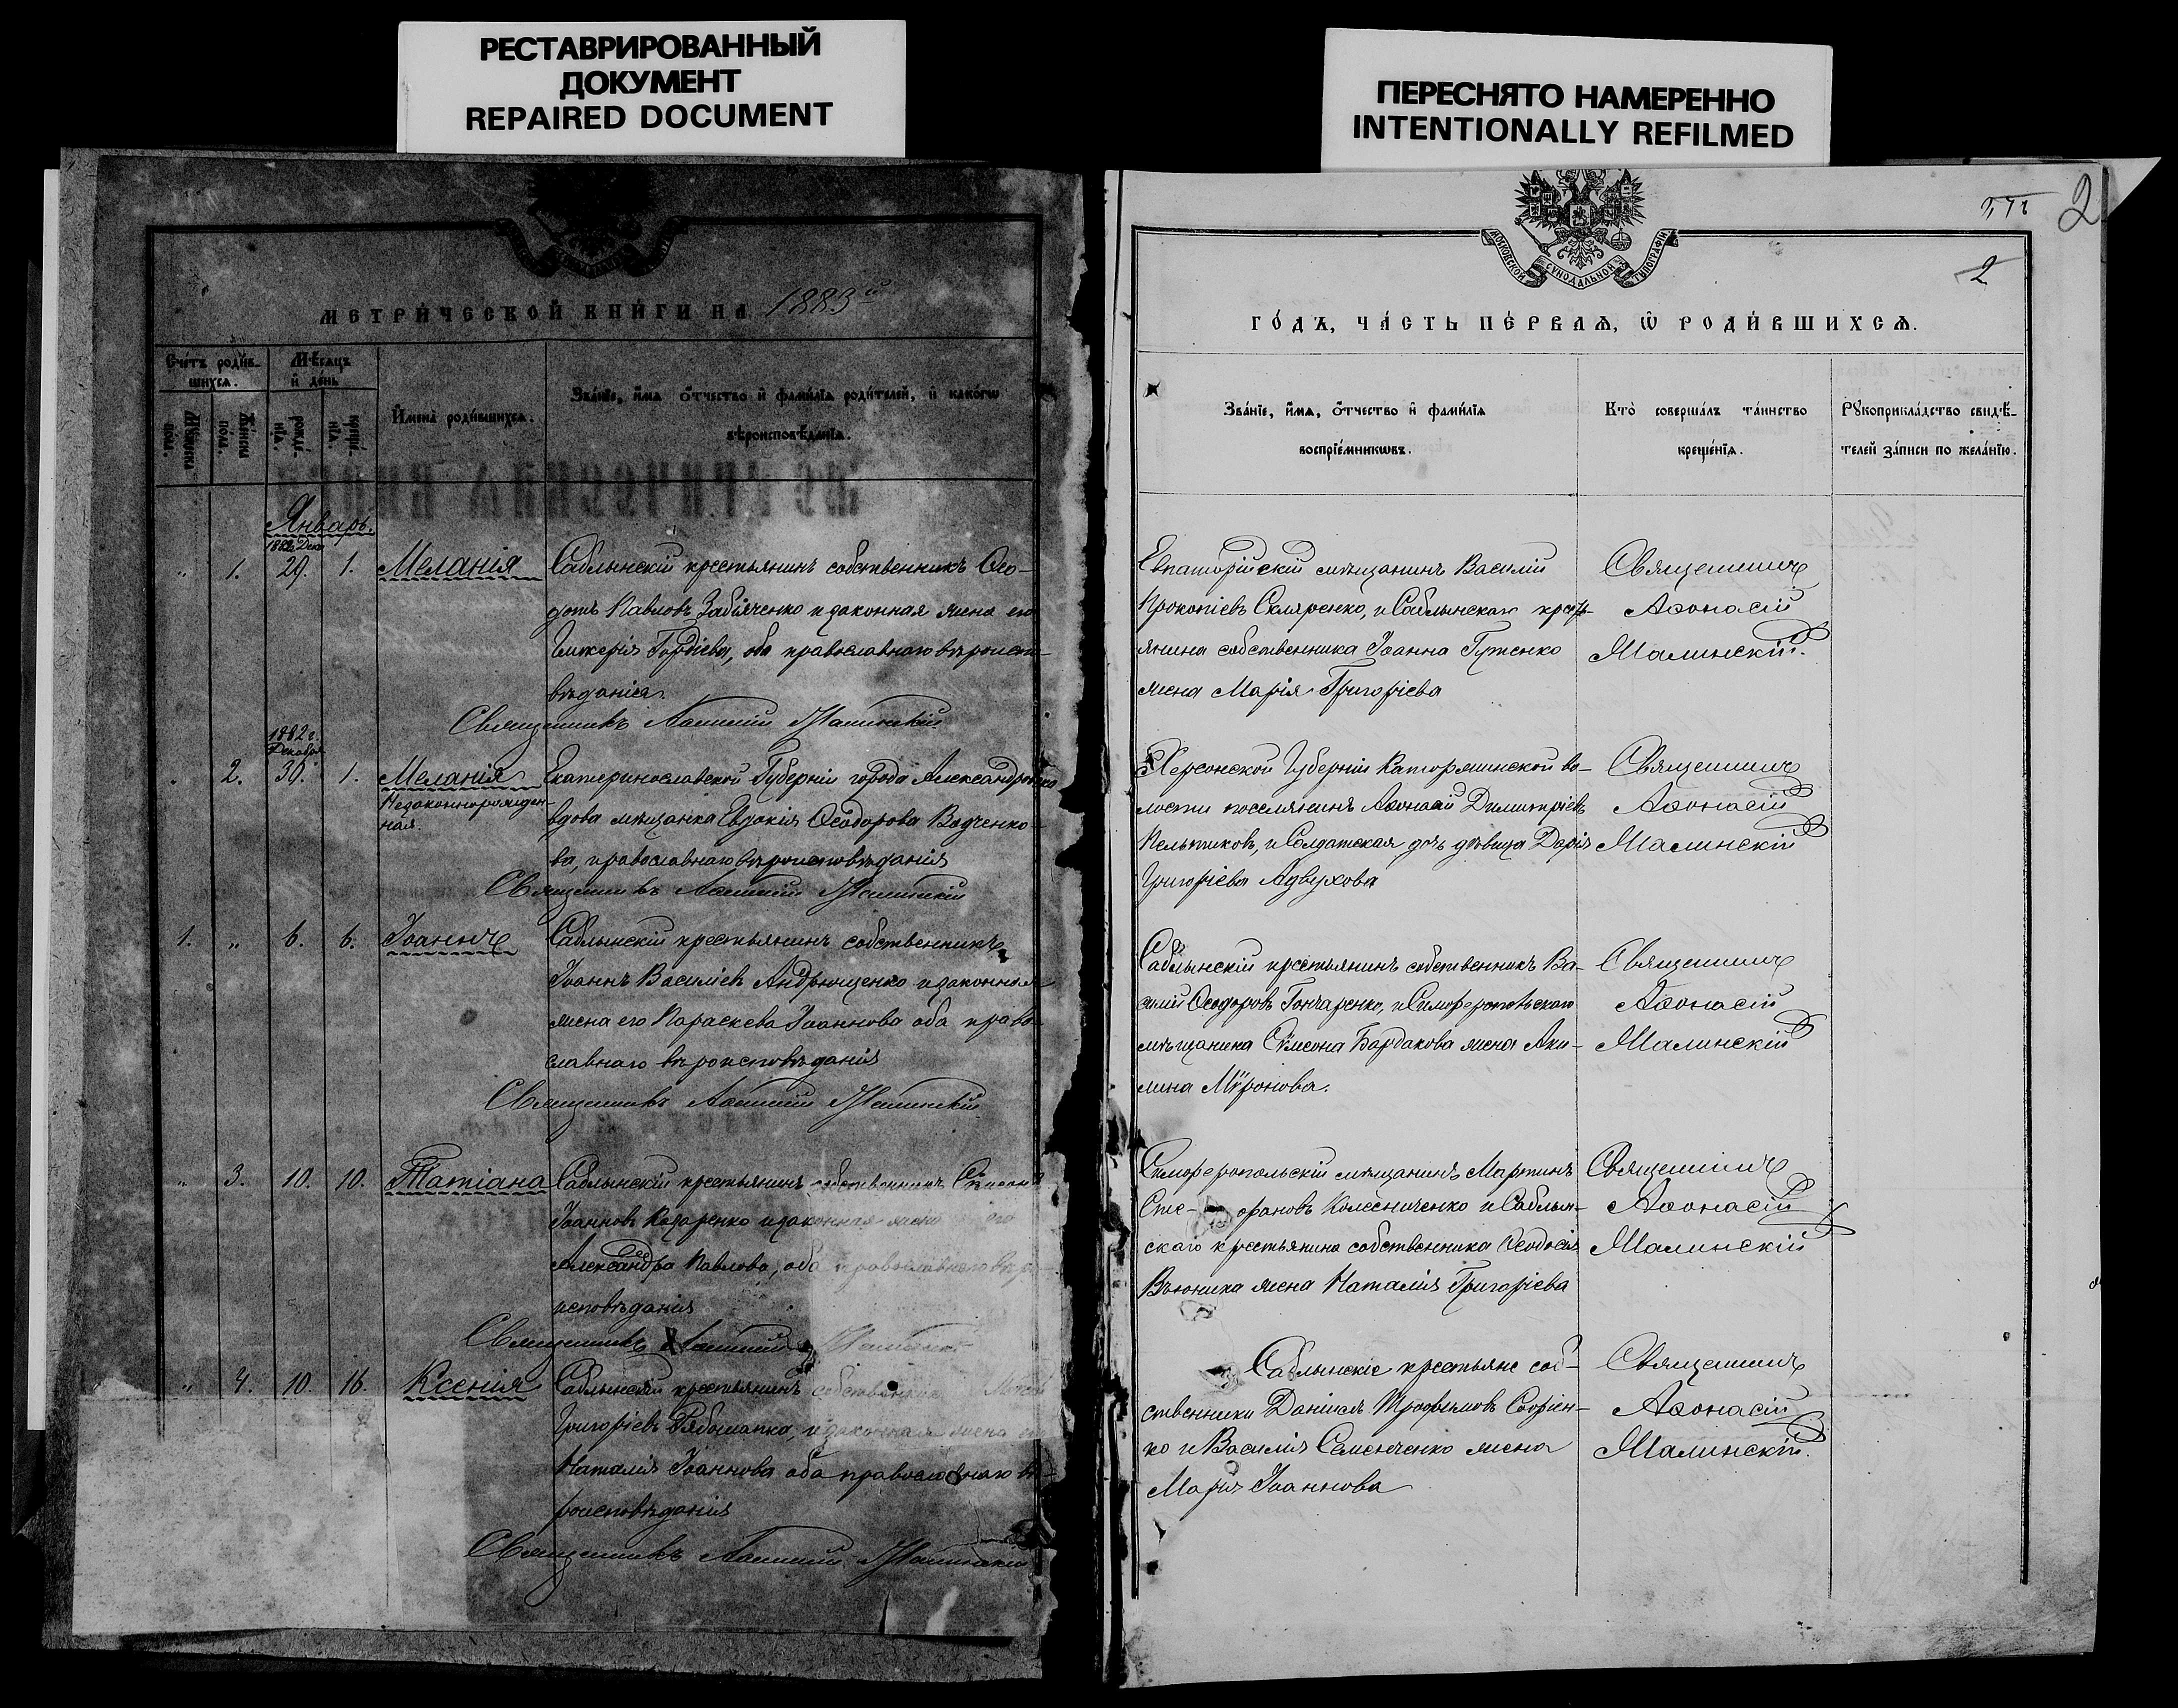 РЕСТАВРИРОВАННЫЙ
ДОКУМЕНТ
REPAIRED DOCUMENT
ПЕРЕСНЯТО НАМЕРЕННО
INTENTIONALLY REFILMED
МЕТРИ́ЧЕСКОЙ КНИ́ГИ НА 1883й
Сче́тъ роди́в-
шихсѧ.
Мѣ́сѧцъ
и҆ де́нь
Мꙋ́жеска
по́ла.
Же́нска
по́ла.
рожде́-
нїѧ.
креще́-
нїѧ.
И҆мена̀ роди́вшихсѧ.
Зва́нїе, и҆́мѧ ѻ҆́тчество и҆ фами́лїѧ роди́телей, и҆ како́гѡ
вѣроисповѣ́данїѧ.
Январь.
1882 Дек.
„ 1. 29. 1. Меланія Саблынскій крестьянинъ собственникъ Ѳео-
дотъ Павловъ Забіяченко и законная жена его
Гликерія Гордіева, оба православнаго вѣроиспо-
вѣданія.
Священникъ Аѳонасій Малинскій
1882 г.
Декабря
„ 2. 30. 1. Меланія Екатеринославской Губерніи города Александровска
Незаконнорожден-
ная.
вдова мѣщанка Евдокія Ѳеодорова Водченко-
ва, православнаго вѣроисповѣданія
Священникъ Аѳонасій Малинскій
1. „ 6. 6. Іоаннъ Саблынскій крестьянинъ собственникъ
Іоаннъ Василіевъ Андрющенко и законная
жена его Параскева Іоаннова оба право-
славнаго вѣроисповѣданія
Священникъ Аѳонасій Малинскій
„ 3. 10. 10. Татіана Саблынскій крестьянинъ собственникъ Сѵмеонъ
Іоанновъ Казаренко и законная жена его
Александра Павлова, оба православнаго вѣро-
исповѣданія
Священникъ Аѳонасій Малинскій
„ 4. 10. 16. Ксенія Саблынскій крестьянинъ собственникъ
Григоріевъ Рябошапка, и законная жена его
Наталія Іоаннова оба православнаго вѣ-
роисповѣданія
Священникъ Аѳонасій Малинскій
2
2
МОСКОВСКОЙ СѴНОДАЛЬНОЙ ТѴПОГРАФІИ
ГО́ДЪ, ЧА́СТЬ ПЕ́РВАѦ, Ѽ РОДИ́ВШИХСѦ.
Зва́нїе, и҆́мѧ, ѻ҆́тчество и҆ фами́лїѧ
воспрїе́мникѡвъ.
Кто̀ соверша́лъ та́инство
креще́нїѧ.
Рꙋкоприкла́дство свидѣ́-
телей за́писи по жела́нїю.
Евпаторійскій мѣщанинъ Василій
Прокопіевъ Скляренко, и Саблынскаго кресть-
янина собственника Іоанна Гутенко
жена Марія Григоріева
Священникъ
Аѳонасій
Малинскій.
Херсонской Губерніи во-
лости поселянинъ Аѳонасій Димитріевъ
и Солдатская дочь дѣвица Дарія
Григоріева Адвухова
Священникъ
Аѳонасій
Малинскій
Саблынскій крестьянинъ собственникъ Ва-
силій Ѳеодоровъ Гончаренко, и Симферопольскаго
мѣщанина Сѵмеона Бардакова жена Аки-
лина Мѵронова.
Священникъ
Аѳонасій
Малинскій
Симферопольскій мѣщанинъ Мартинъ
Сте- фановъ Колесниченко и Саблын-
скаго крестьянина собственника Ѳеодосія
Вьюника жена Наталія Григоріева
Священникъ
Аѳонасій
Малинскій
Саблынскіе крестьяне соб-
ственники Даніилъ Трофимовъ Софіен-
ко и Василія Семенченко жена
Марія Іоаннова
Священникъ
Аѳонасій
Малинскій.